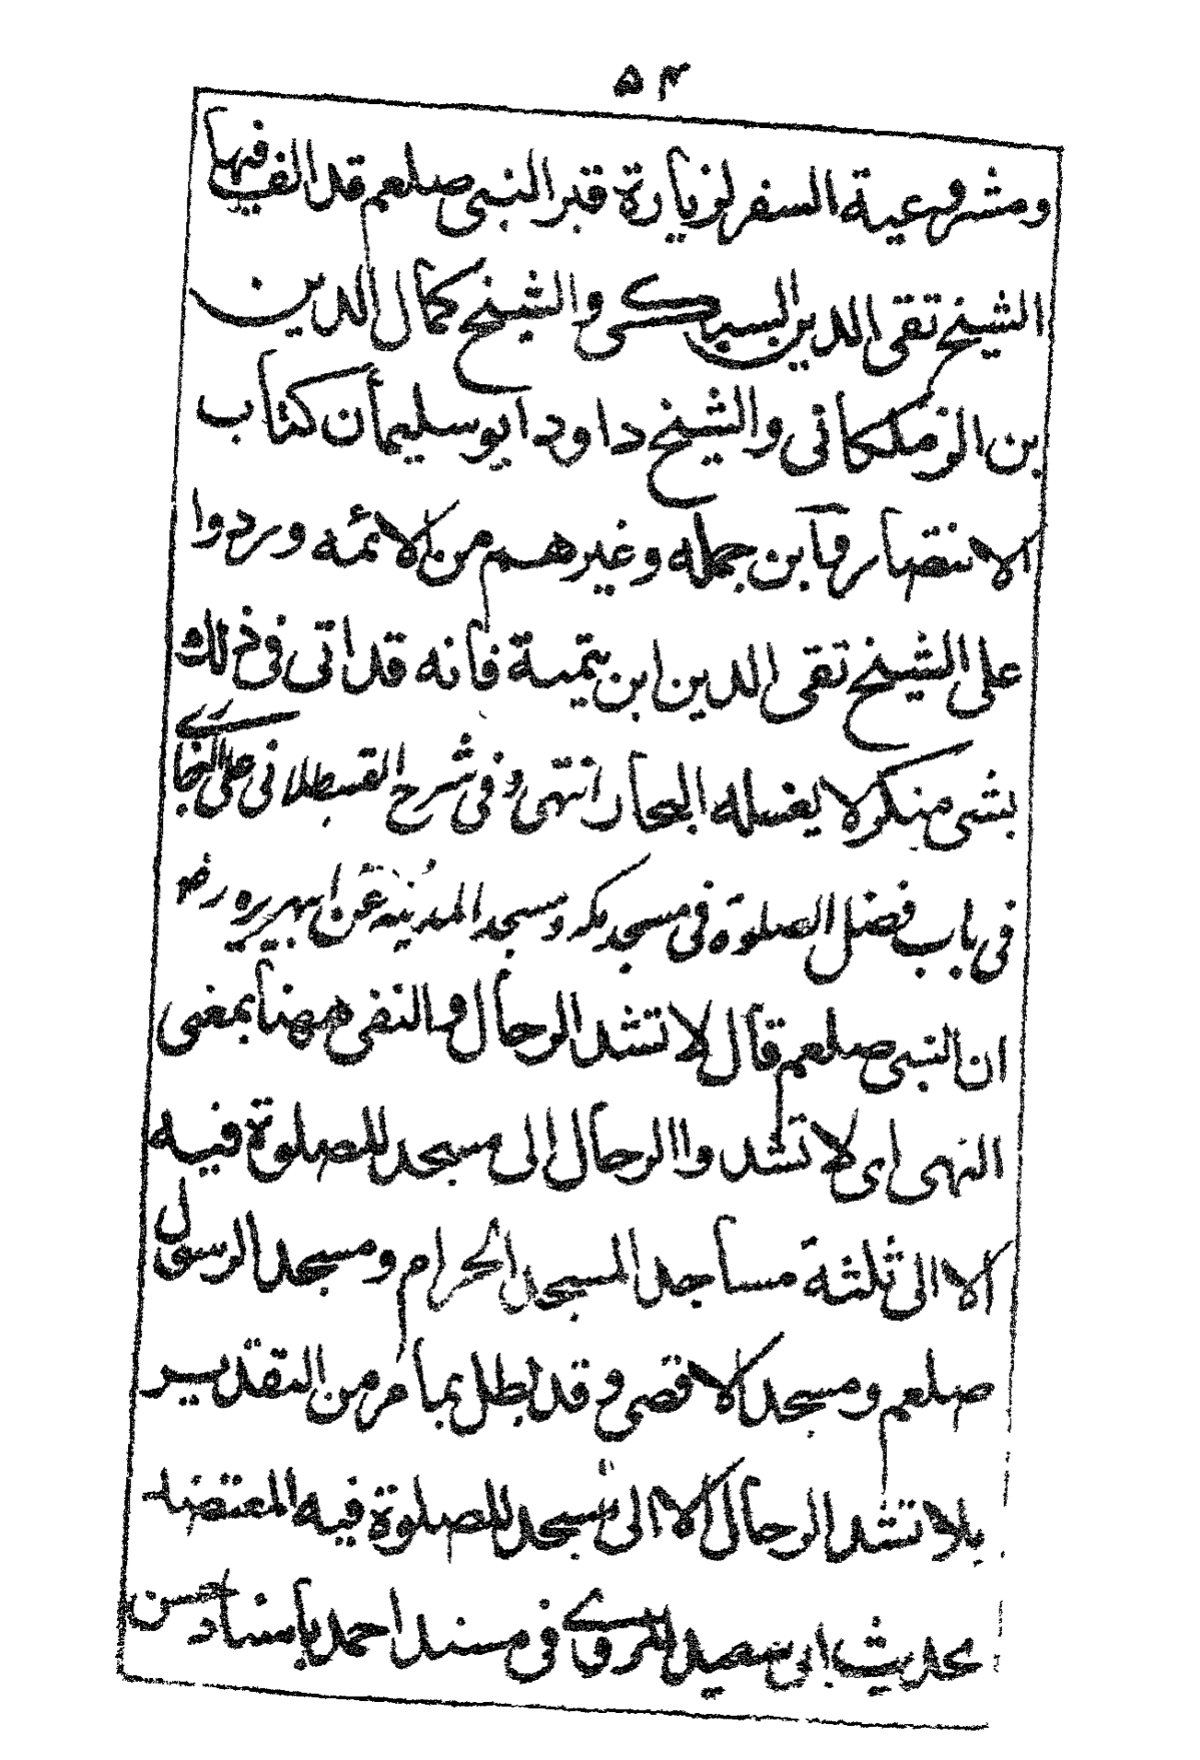 ۵۴
ومشروعية السفر لزيارة قبر النبي صلعم قد الف فيها
الشيخ تقي الدين السبكي والشيخ كمال الدين
بن الزملكاني والشيخ داود ابو سليمان كتاب
الانتصار وابن جمله وغيرهم من الائمه وردوا
على الشيخ تقي الدين ابن تيمية فانه قد اتى في ذلك
بشي منكر لا يغسله البحار انتهى وفي شرح القسطلاني على البخاري
في باب فضل الصلوة في مسجد مكه ومسجد المدينه عن ابيهريره رض
ان النبي صلعم قال لا تشد الرحال والنفي ههنا بمعنى
النهي اي لا تشدوا الرحال الى مسجد للصلوة فيه
الا الى ثلثة مساجد المسجد الحرام ومسجد الرسول
صلعم ومسجد الاقصى وقد بطل بما مر من التقدير
بلا تشد الرحال الا الى مسجد للصلوة فيه المعتضد
بحديث ابي سعيد المروي في مسند احمد باسناد حسن